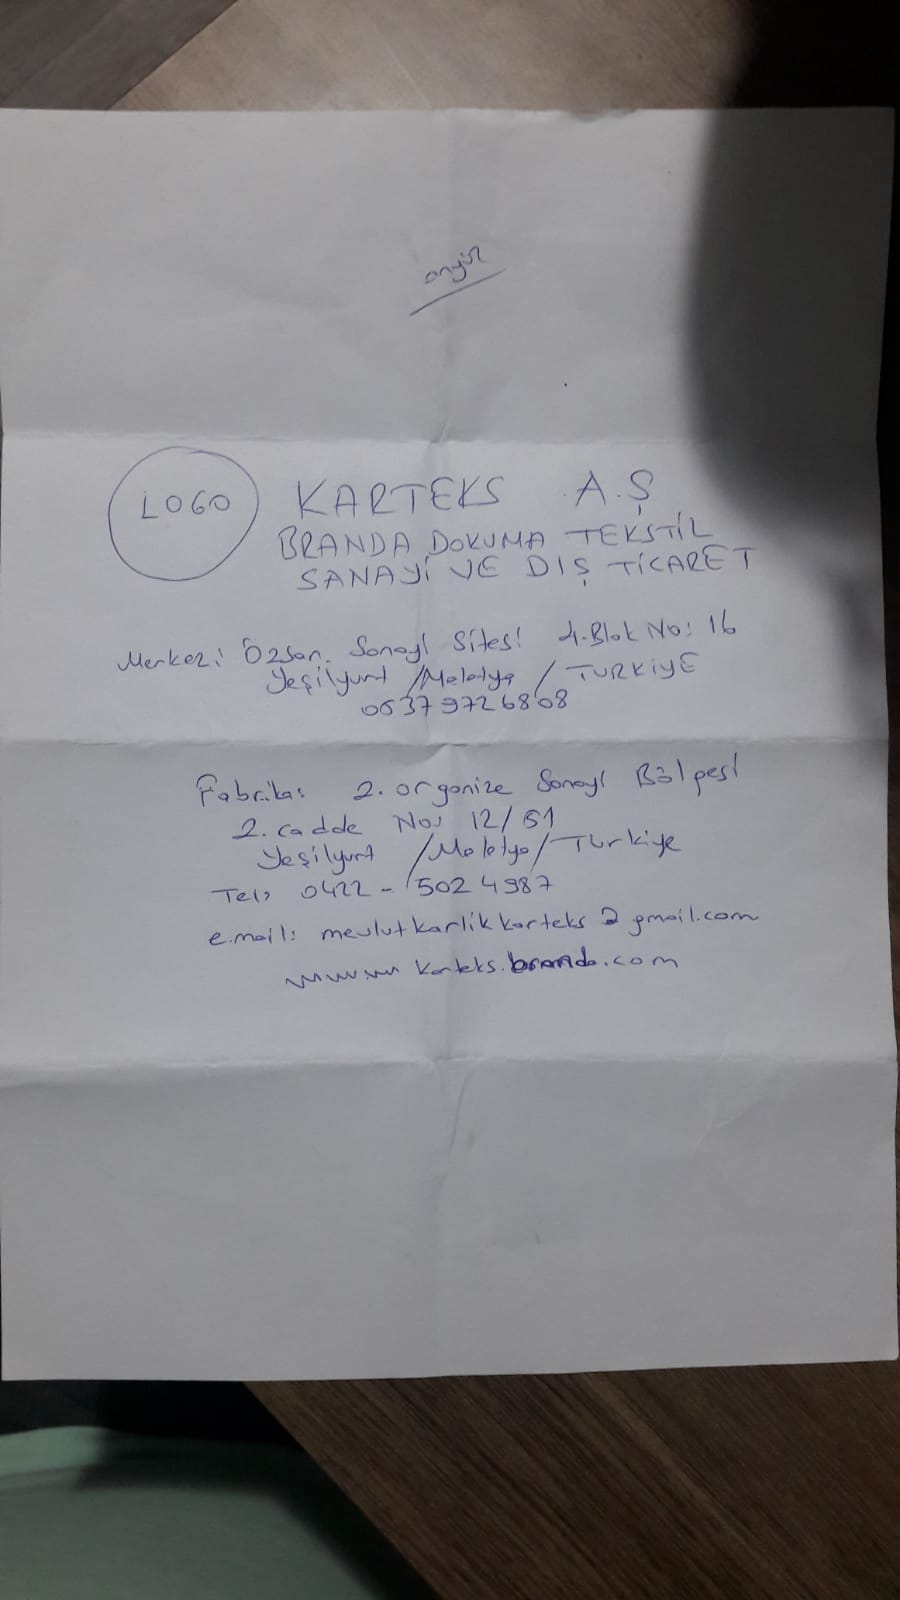 LOGO
KARTEKS A.Ş
BRANDA DOKUMA TEKSTİL
SANAYİ VE DIŞ TİCARET
Merkez: Özsan. Sanayi Sitesi 4.Blok No: 16
Yeşilyurt /Malatya / TÜRKİYE
Fabrika: 2. organize Sanayi Bölgesi
2. cadde No: 12/51
Yeşilyurt /Malatya/Türkiye
Tel: 0422 - 502 4987
e.mail: mevlutkarlikkarteks @ gmail.com
www karteks.branda.com